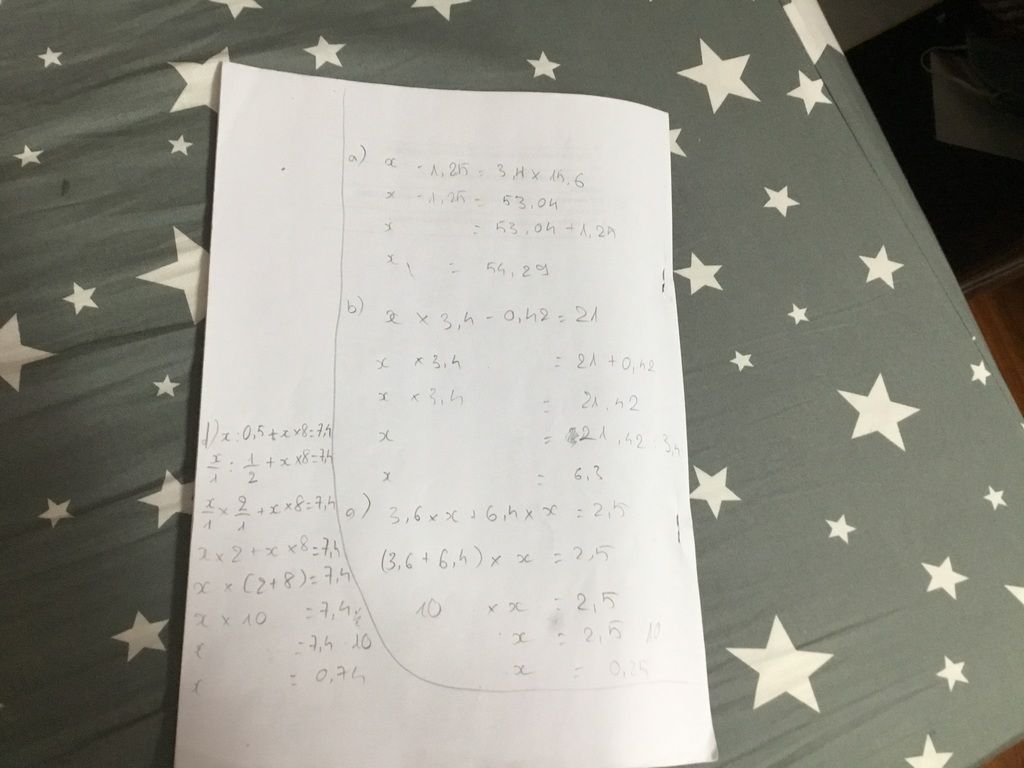 a) x - 1,25 = 3,4 x 15,6
x - 1,25 = 53,04
x = 53,04 + 1,25
x = 54,29
b) x x 3,4 - 0,42 = 21
x x 3,4 = 21 + 0,42
x x 3,4 = 21,42
x = 21,42 : 3,4
x = 6,3
c) 3,6 x x + 6,4 x x = 2,5
(3,6 + 6,4) x x = 2,5
10 x x = 2,5
x = 2,5 10
x = 0,25
d) x : 0,5 + x x 8 = 7,4
x/1 : 1/2 + x x 8 = 7,4
x/1 x 2/1 + x x 8 = 7,4
x x 2 + x x 8 = 7,4
x x (2 + 8) = 7,4
x x 10 = 7,4
x = 7,4 10
x = 0,74